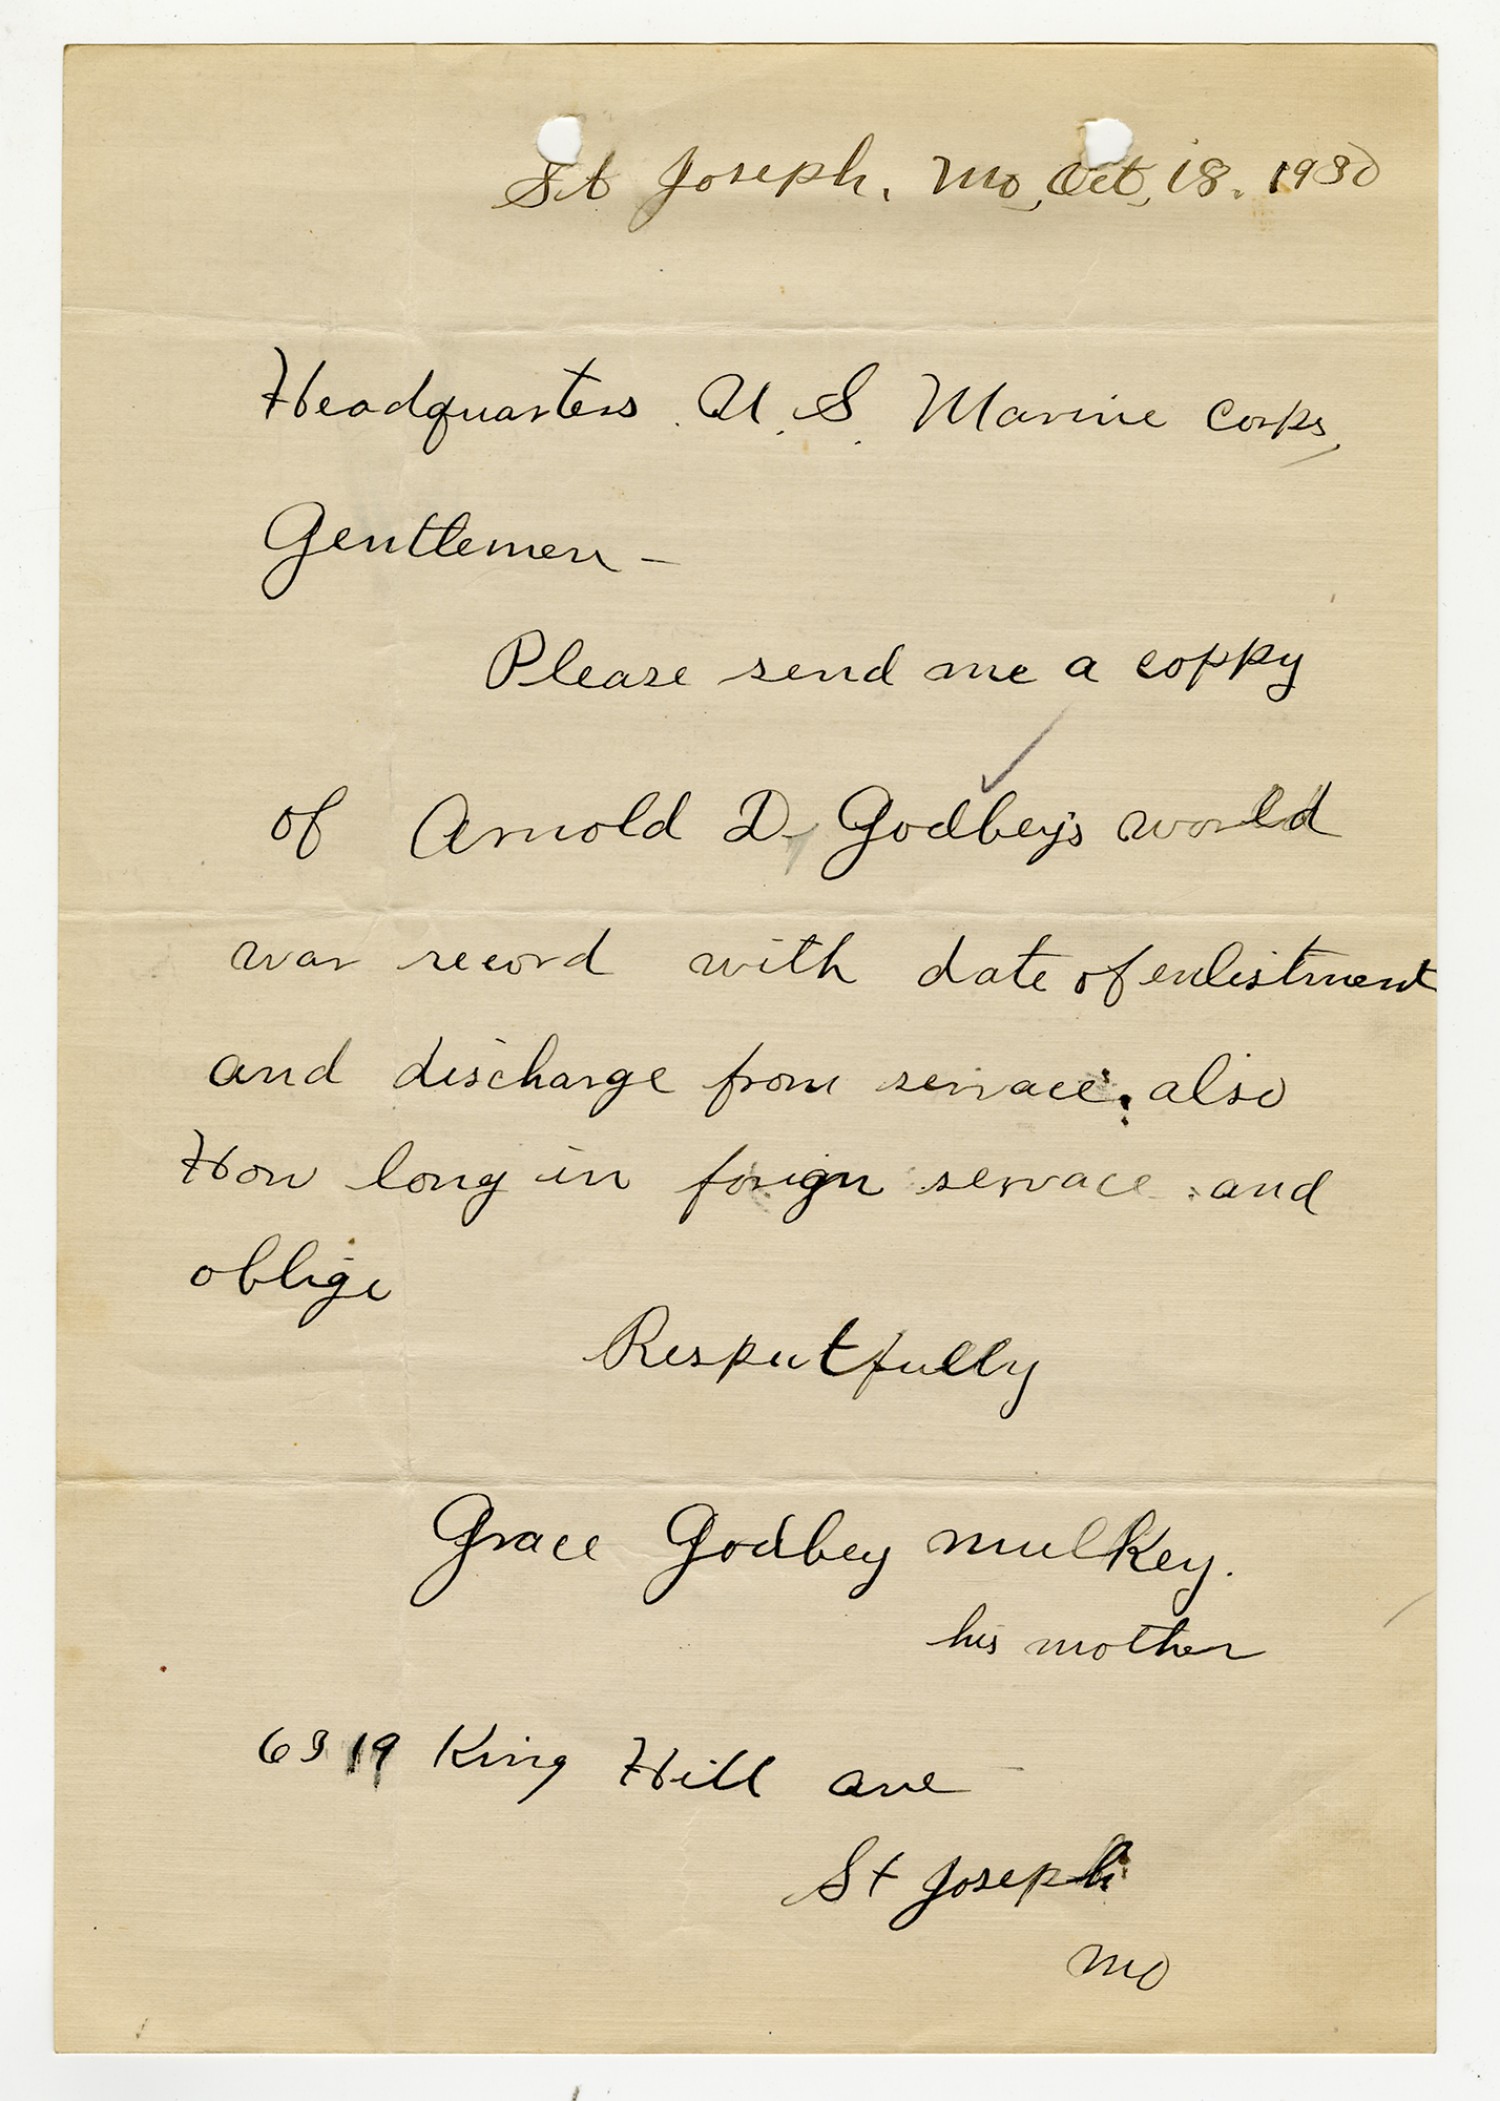 St Joseph, Mo, Oct, 18. 1930
Headquarters. U. S. Marine Corps,
Gentlemen –
Please send me a coppy
of Arnold D. Godbey's world
war record with date of enlistment
and discharge from servace, also
How long in forign servace and
oblige
Resputfully
Grace Godbey Mulkey.
his mother
6319 King Hill ave
St Joseph
Mo